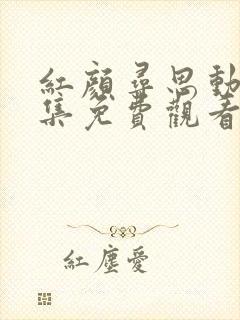 紅顏尋思動
集免費觀看
紅塵愛